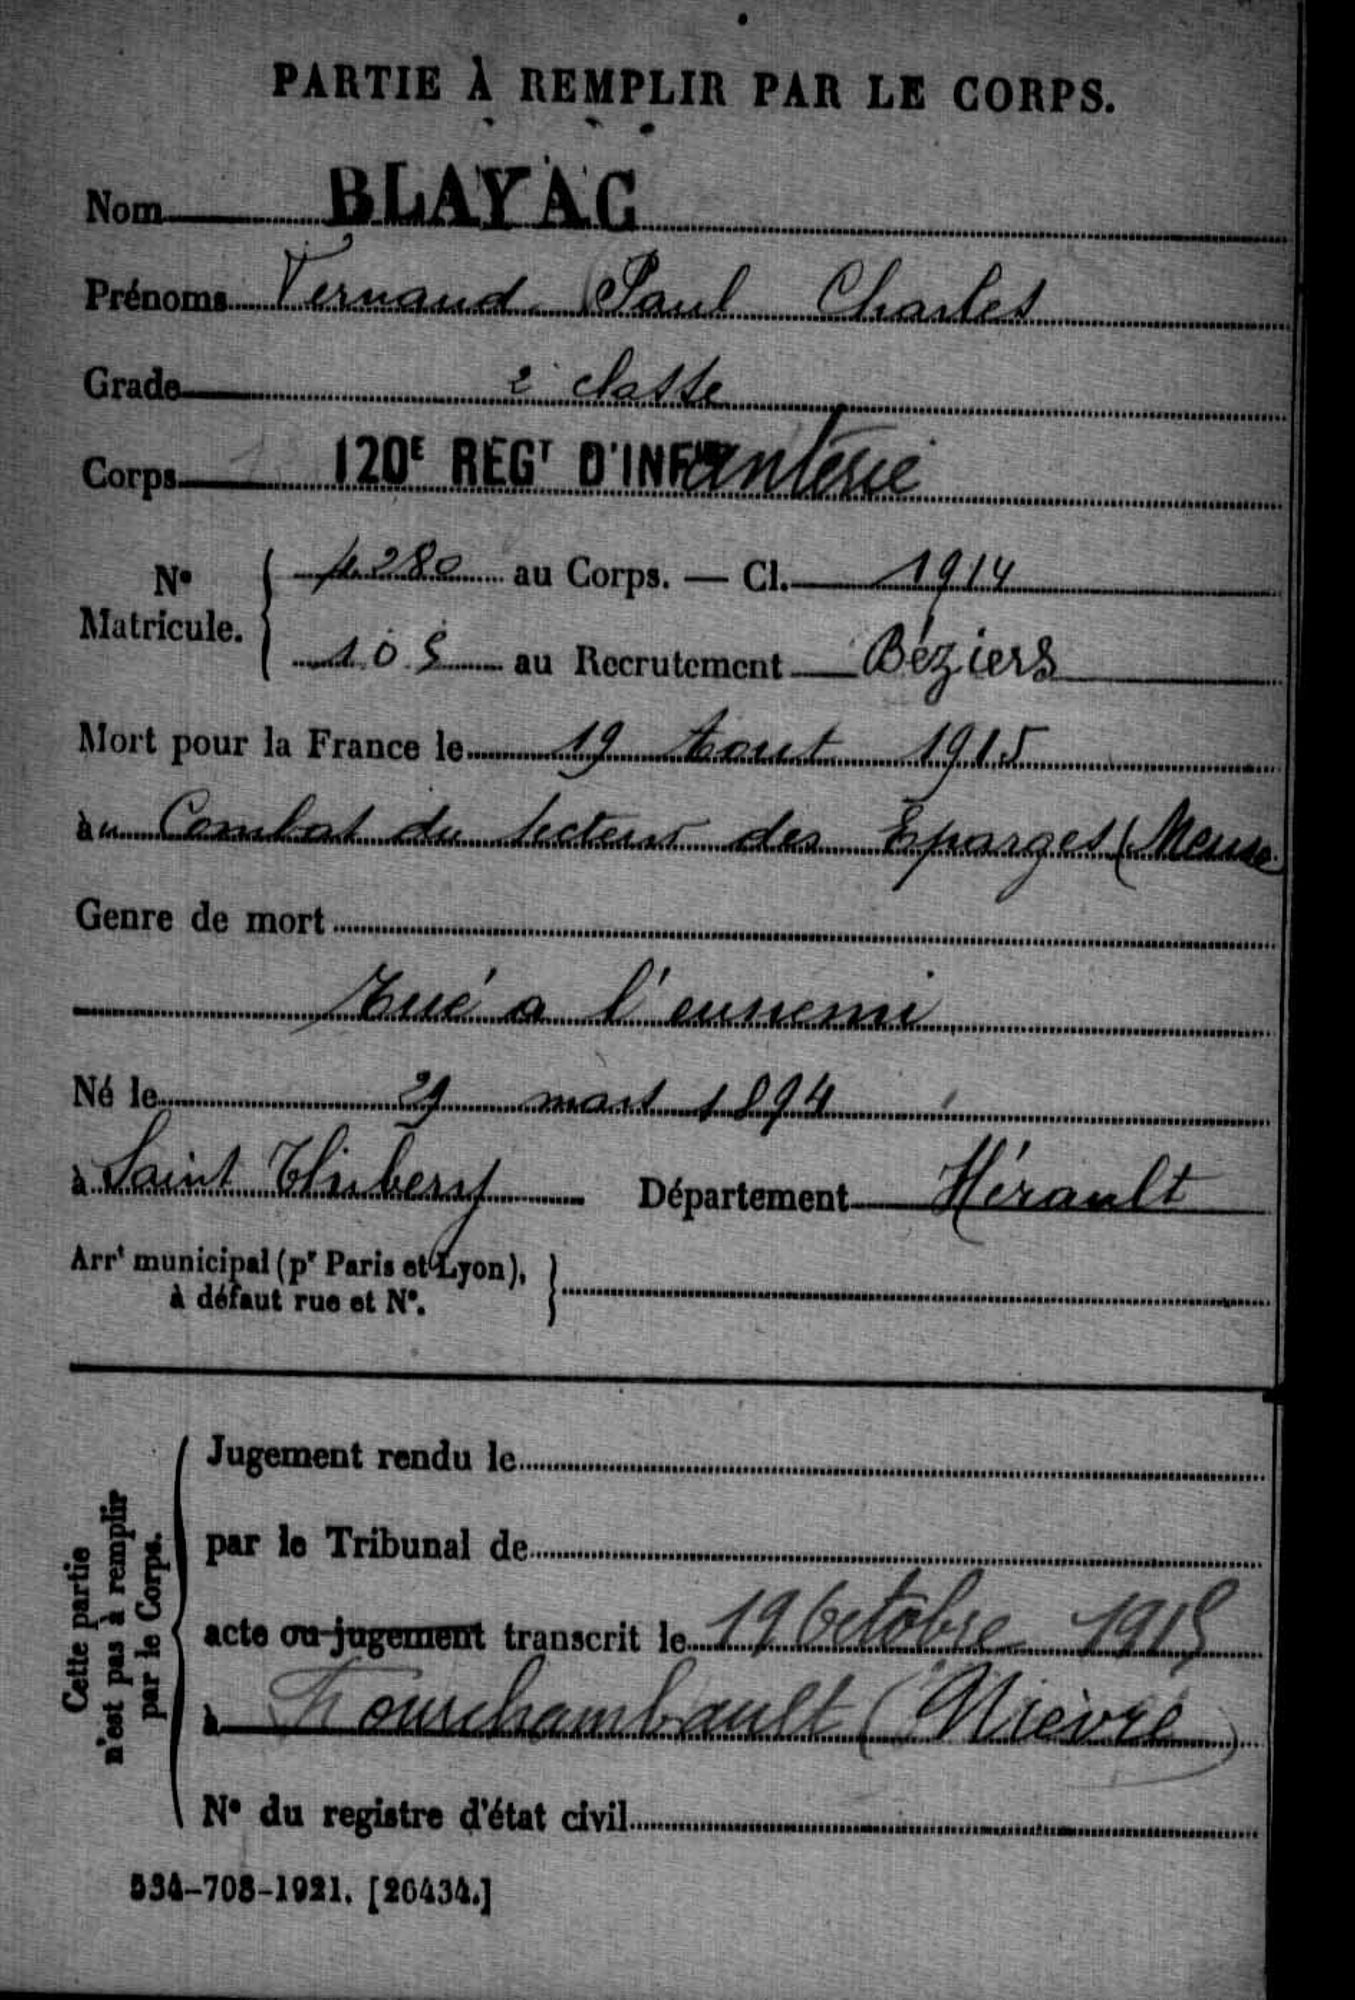 PARTIE À REMPLIR PAR LE CORPS.
Nom BLAYAC
Prénoms Fernand Paul Charles
Grade 2e classe
Corps 120E REGT D'INFanterie
No Matricule. { 4280 au Corps. — Cl. 1914
105 au Recrutement Béziers
Mort pour la France le 19 Aout 1915
au Combat du secteur des Eparges (Meuse
Genre de mort
Tué a l'ennemi
Né le 29 mars 1894
à Saint Thibery Département Hérault
Arrt municipal (pr Paris et Lyon),
à défaut rue et No.
Cette partie
n'est pas à remplir
par le Corps.
Jugement rendu le
par le Tribunal de
acte ou jugement transcrit le 19 Octobre 1915
à Fourchambault (Nièvre)
No du registre d'état civil
534-708-1921. [26434.]